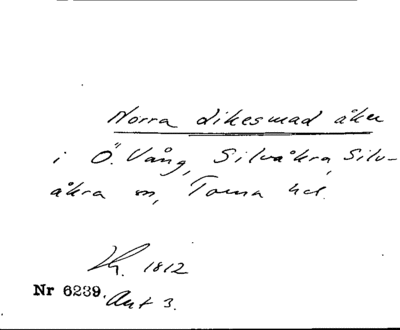 Norra dikesmad åker
i Ö. Vång, Silvåkra, Silv-
åkra sn, Torna hd.
1812
Nr 6239. Akt 3.